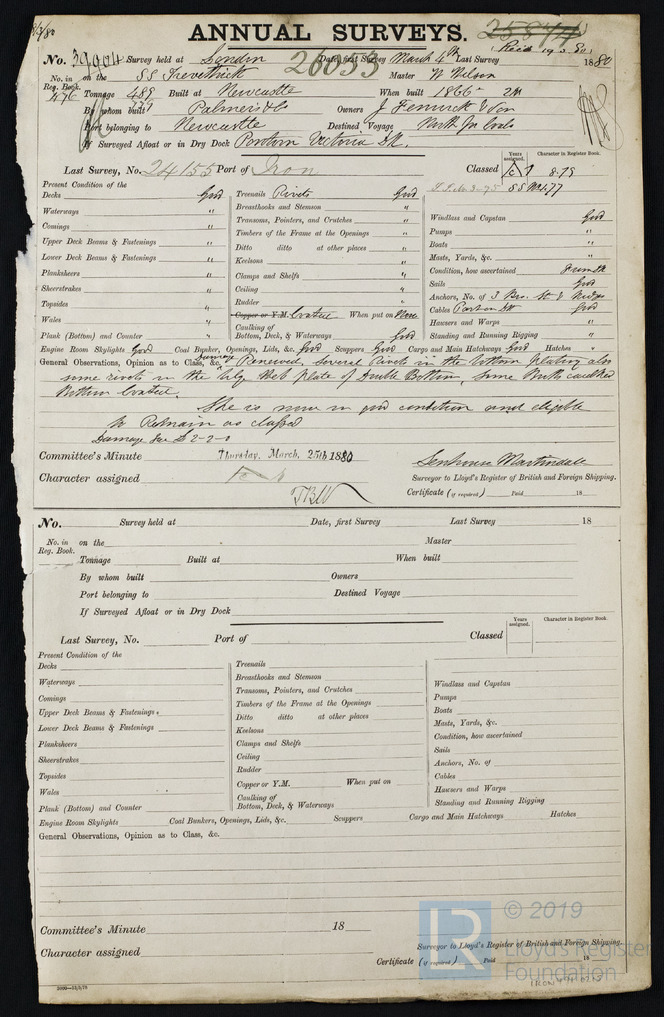 ANNUAL SURVEYS.
Recd 19.3.80
No. 39904 Survey held at London Date, first Survey March 4th Last Survey 1880
26053
No. in Reg. Book. 476 on the SS Trevethick Master W Wilson
Tonnage 489 Built at Newcastle When built 1866 2M
By whom built Palmers & Co Owners J Fenwick & Son
Port belonging to Newcastle Destined Voyage North for Coals
If Surveyed Afloat or in Dry Dock Victoria Dk.
Last Survey, No. 24155 Port of Iron Classed 8.79
Years assigned. Character in Register Book.
SS No 1 77
Present Condition of the
Decks Good
Waterways "
Comings "
Upper Deck Beams & Fastenings "
Lower Deck Beams & Fastenings "
Planksheers "
Sheerstrakes "
Topsides "
Wales "
Plank (Bottom) and Counter "
Treenails Rivets Good
Breasthooks and Stemson "
Transoms, Pointers, and Crutches "
Timbers of the Frame at the Openings "
Ditto ditto at other places "
Keelsons "
Clamps and Shelfs "
Ceiling "
Rudder "
Copper or Y.M. Coated When put on
Caulking of
Bottom, Deck, & Waterways Good
Windlass and Capstan Good
Pumps "
Boats "
Masts, Yards, &c. "
Condition, how ascertained
Sails Good
Anchors, No. of 3 Bro. St & Kedges
Cables Good
Hawsers and Warps "
Standing and Running Rigging "
Engine Room Skylights Good Coal Bunker, Openings, Lids, &c. Good Scuppers Good Cargo and Main Hatchways Good Hatches "
General Observations, Opinion as to Class, &c. Damage Renewed several rivets in the bottom plating also
some rivets in the plate of double Bottom, some butts caulked
bottom coated.
She is now in good condition and eligible
to Remain as classed
Damage fee £2-2-0
Committee's Minute Thursday, March, 25th 1880
Character assigned
TBW
Senhouse Martindale
Surveyor to Lloyd's Register of British and Foreign Shipping.
Certificate (if required) Paid 18
No. Survey held at Date, first Survey Last Survey 18
No. in Reg. Book. on the Master
Tonnage Built at When built
By whom built Owners
Port belonging to Destined Voyage
If Surveyed Afloat or in Dry Dock
Years assigned. Character in Register Book.
Last Survey, No. Port of Classed
Present Condition of the
Decks
Waterways
Comings
Upper Deck Beams & Fastenings
Lower Deck Beams & Fastenings
Planksheers
Sheerstrakes
Topsides
Wales
Plank (Bottom) and Counter
Treenails
Breasthooks and Stemson
Transoms, Pointers, and Crutches
Timbers of the Frame at the Openings
Ditto ditto at other places
Keelsons
Clamps and Shelfs
Ceiling
Rudder
Copper or Y.M. When put on
Caulking of
Bottom, Deck, & Waterways
Windlass and Capstan
Pumps
Boats
Masts, Yards, &c.
Condition, how ascertained
Sails
Anchors, No. of
Cables
Hawsers and Warps
Standing and Running Rigging
Engine Room Skylights Coal Bunkers, Openings, Lids, &c. Scuppers Cargo and Main Hatchways Hatches
General Observations, Opinion as to Class, &c.
Committee's Minute 18
Character assigned
Surveyor to Lloyd's Register of British and Foreign Shipping.
Certificate (if required) Paid 18
LR © 2019
Lloyd's Register
Foundation